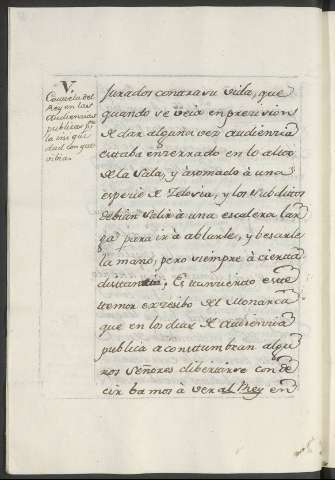 V.
Cautela del
Rey en las
Audiencias
publicas pr.
la iniqui
dad con que
vibia.
jurados contra su vida, que
quando se veia en precision
de dar alguna vez audiencia
estaba enzerrado en lo alto
de la Sala, y asomado à una
especie de Zelosia, y los Subditos
debian salir à una escalera lar
ga para ir à ablarle, y besarle
la mano, pero siempre à cierta
distancia. Es tan cierto este
temor exzesibo del Monarca
que en los dias de Audiencia
publica acostumbran algu
nos Señores libertarse con de
cir bamos à ver al Rey en